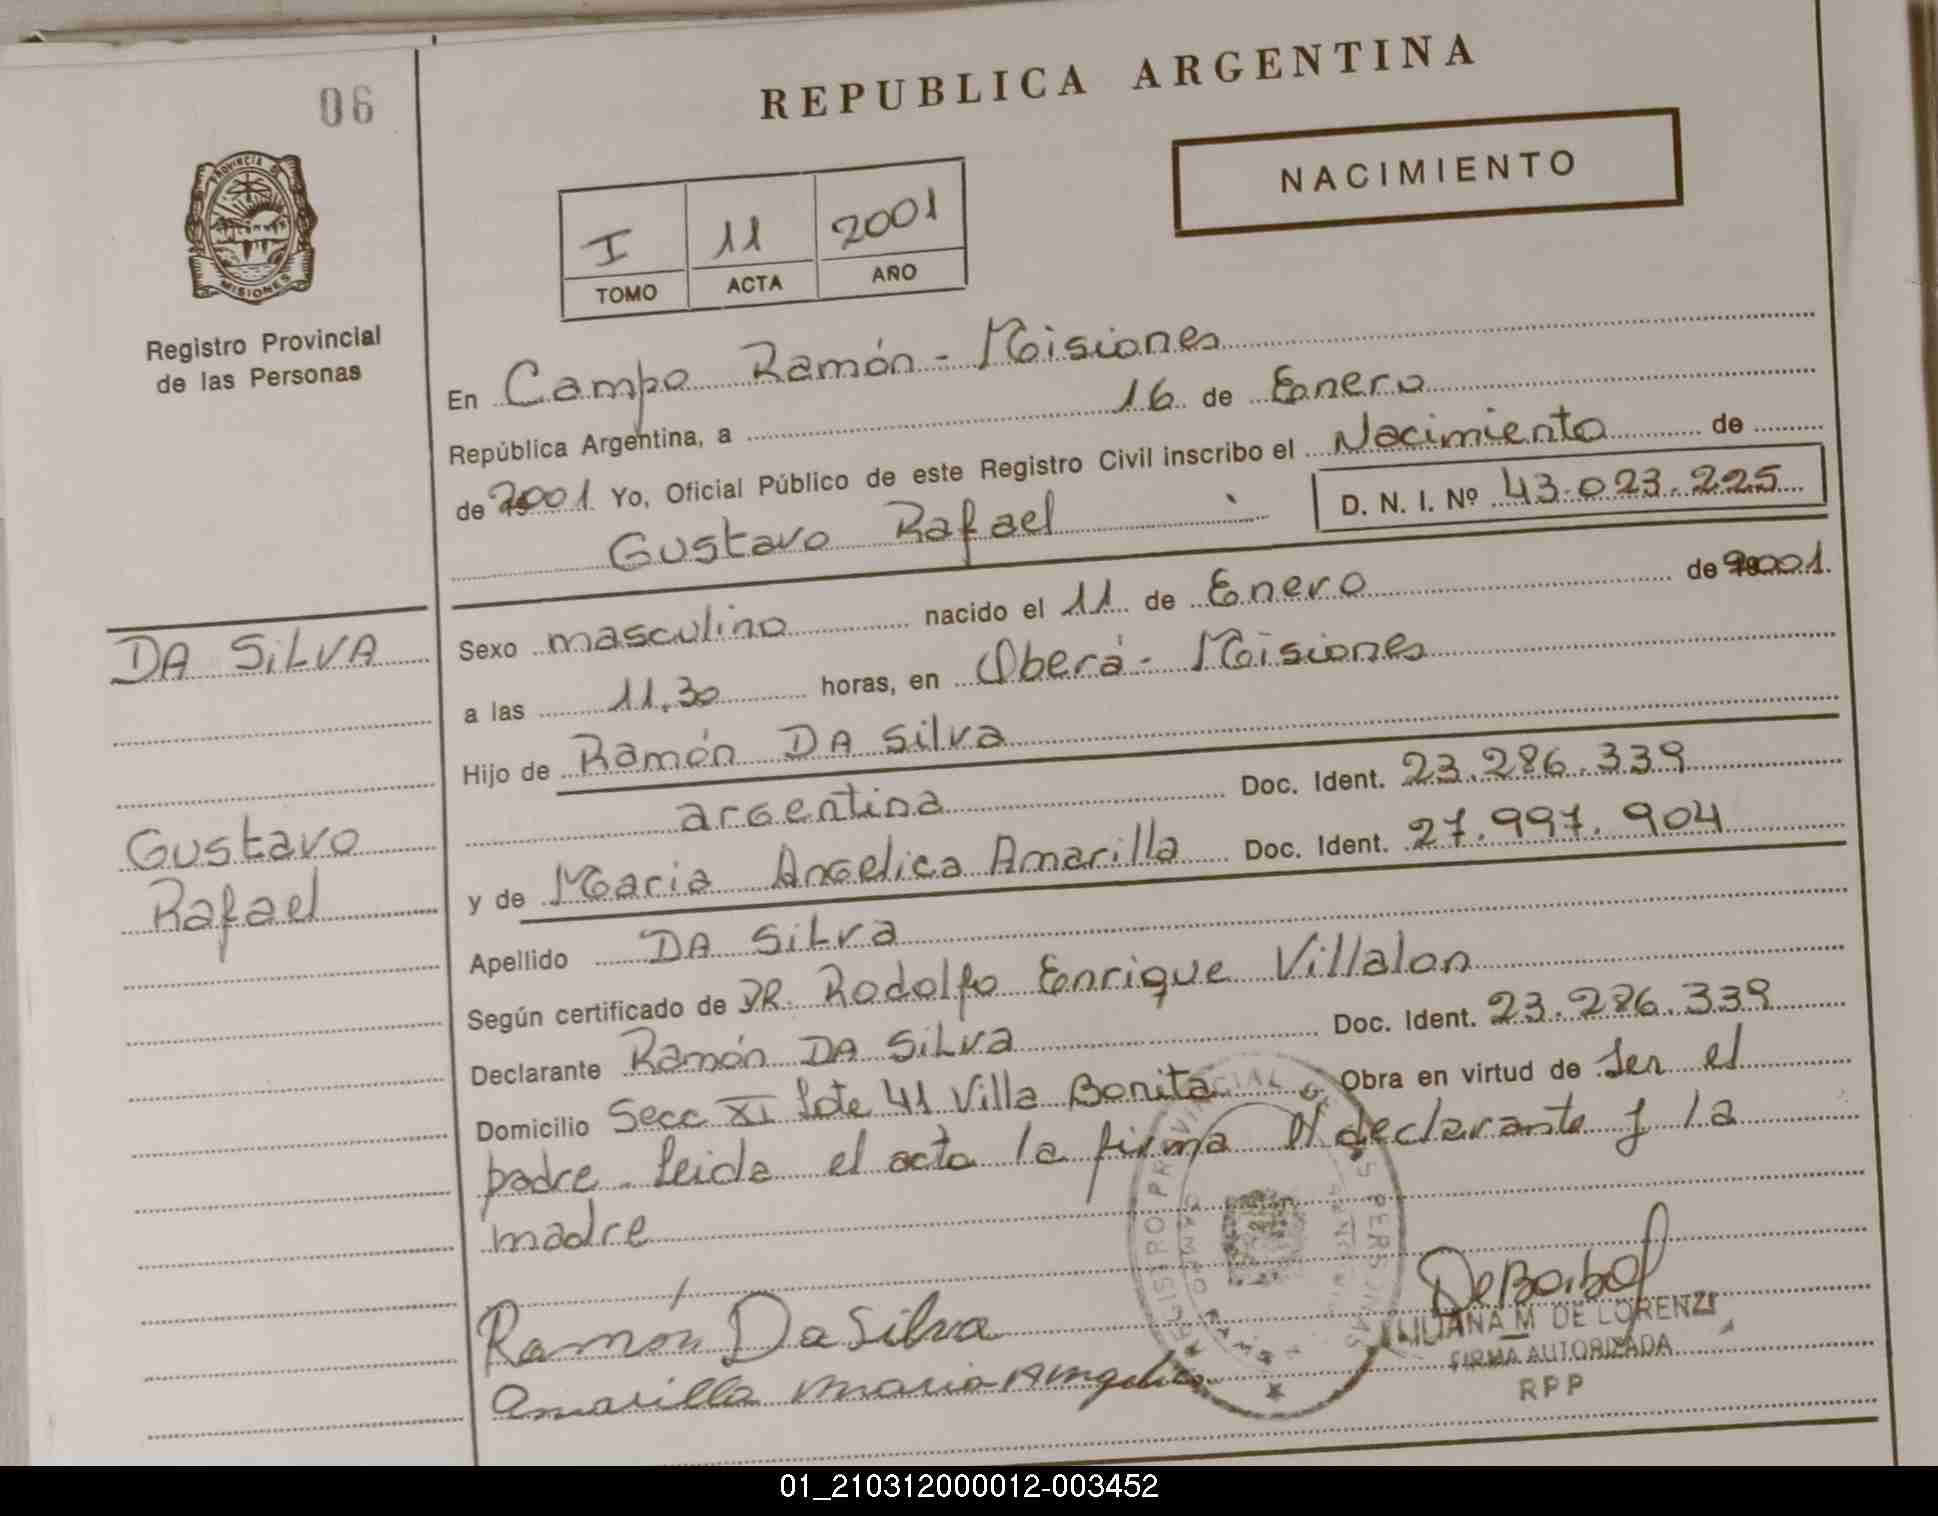 06
REPUBLICA ARGENTINA
NACIMIENTO
PROVINCIA DE
MISIONES
I 11 2001
TOMO ACTA AÑO
Registro Provincial
de las Personas
En Campo Ramón - Misiones
República Argentina, a 16 de Enero
de 2001 Yo, Oficial Público de este Registro Civil inscribo el Nacimiento de
Gustavo Rafael D. N. I. Nº 43.023.225
DA SiLVA
Gustavo
Rafael
Sexo masculino nacido el 11 de Enero de 2001.
a las 11.30 horas, en Oberá - Misiones
Hijo de Ramón DA Silva
argentina Doc. Ident. 23.286.339
y de Maria Angelica Amarilla Doc. Ident. 27.997.904
Apellido DA SiLva
Según certificado de DR. Rodolfo Enrique Villalon
Declarante Ramón DA SiLva Doc. Ident. 23.286.339
Domicilio Secc XI lote 41 Villa Bonita Obra en virtud de Ser el
padre. Leida el acta la firma el declarante y la
madre
Ramón Da Silva
Amarilla Maria Angelica
LILIANA M DE LORENZI
FIRMA AUTORIZADA
RPP
01_210312000012-003452